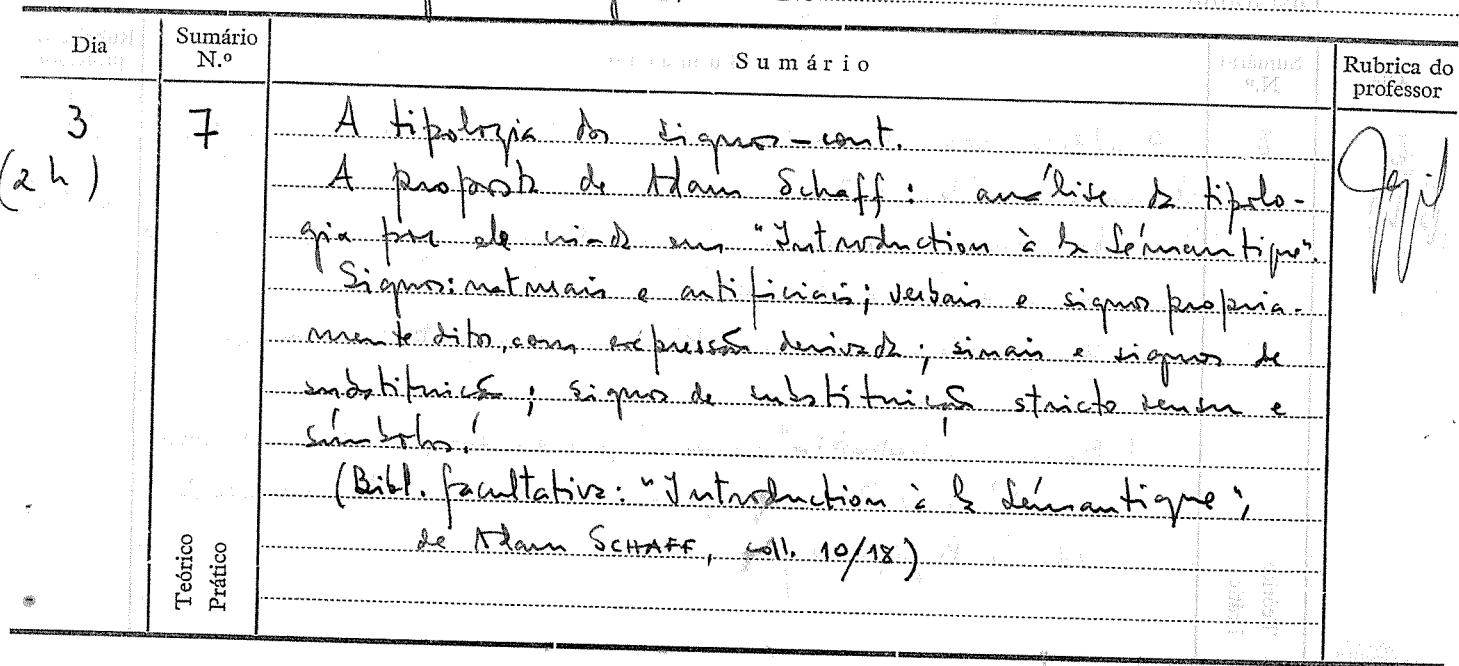 Dia
Sumário N.º
Sumário
Rubrica do professor
3
(2 h)
7
A tipologia dos signos - cont.
A proposta de Adam Schaff: análise da tipolo-
gia por ele criada em "Introduction à la Sémantique".
Signos: naturais e artificiais; verbais e signos propria-
mente ditos, com expressão derivada; sinais e signos de
substituição; signos de substituição stricto sensu e
símbolos.
(Bibl. facultativa: "Introduction à la Sémantique",
de Adam SCHAFF, coll. 10/18)
Teórico
Prático